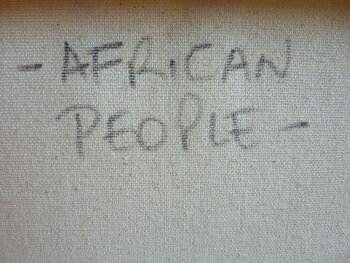 - AFRICAN
PEOPLE -